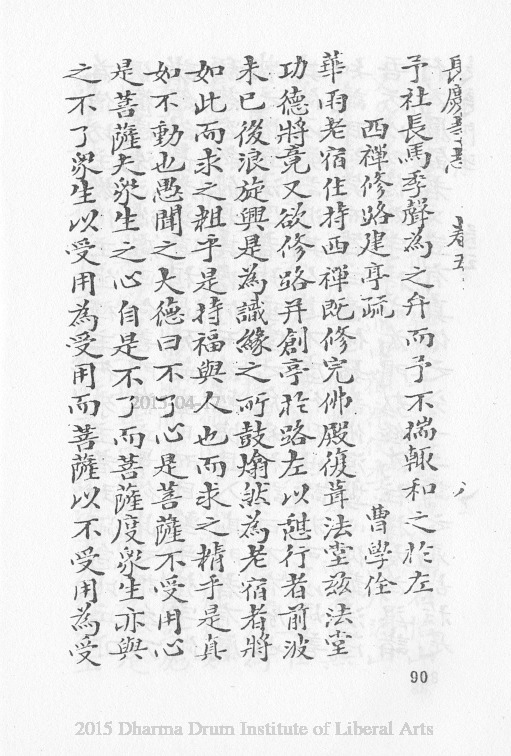 長慶寺志 卷五 八
予社長馬季聲為之弁而予不揣輒和之於左
西禪修路建亭疏 曹學佺
華雨老宿住持西禪既修完佛殿復葺法堂茲法堂
功德將竟又欲修路并創亭於路左以憇行者前波
未已後浪旋興是為識緣之所鼓煽然為老宿者將
如此而求之粗乎是持福與人也而求之精乎是真
如不動也愚聞之大德曰不了心是菩薩不受用心
是菩薩夫衆生之心自是不了而菩薩度衆生亦與
之不了衆生以受用為受用而菩薩以不受用為受
90
2015-04-17
2015 Dharma Drum Institute of Liberal Arts